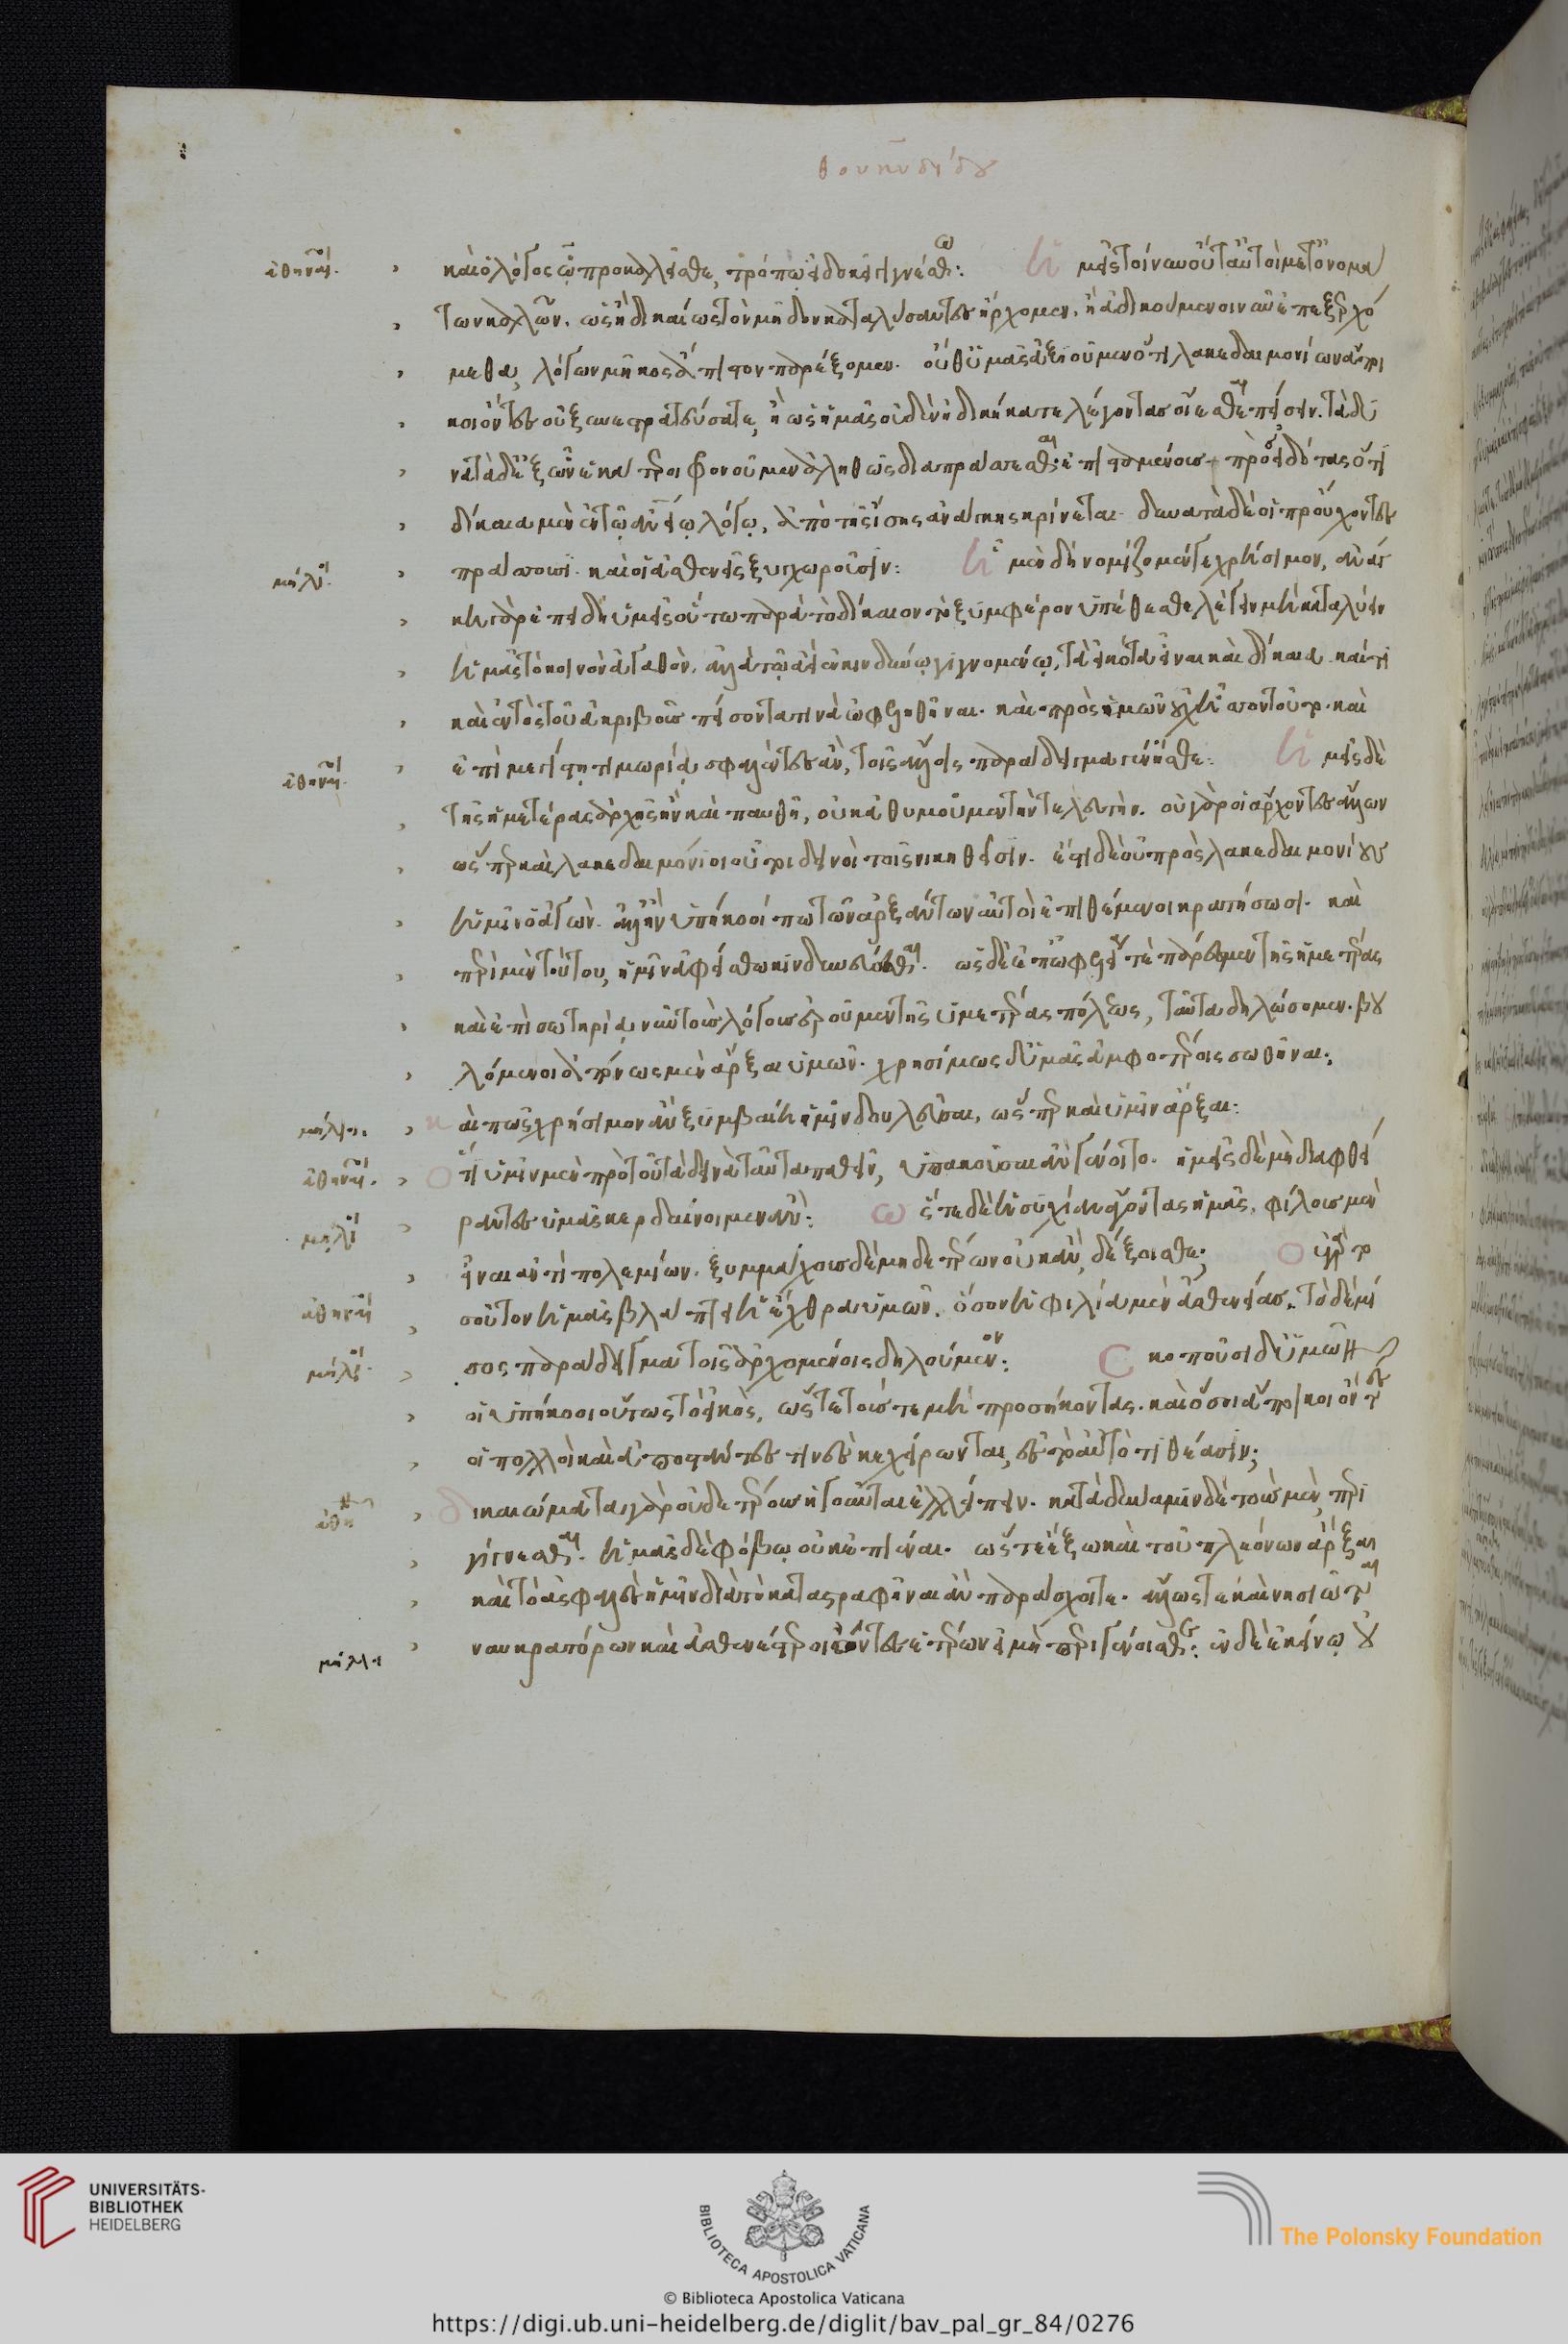 θουκυδίδου
ἀθηναῖοι. καὶ ὁ λόγος ᾧ προκαλεῖσθε, τρόπῳ εἰ δοκεῖ γιγνέσθω: Ἡμεῖς τοίνυν οὔτ' αὐτοὶ μετ' ὀνομά
των καλῶν, ὡς ἢ δικαίως τὸν μῆδον καταλύσαντες ἄρχομεν, ἢ ἀδικούμενοι νῦν ἐπεξερχό
μεθα, λόγων μῆκος ἄπιστον παρέξομεν. οὔθ' ὑμᾶς ἀξιοῦμεν ὅτι λακεδαιμονίων ἄποι
κοι ὄντες οὐ ξυνεστρατεύσατε, ἢ ὡς ἡμᾶς οὐδὲν ἠδικήκατε λέγοντας οἴεσθαι πείσειν. τὰ δυ
νατὰ δ' ἐξ ὧν ἑκάτεροι φρονοῦμεν ἀληθῶς διαπράσσεσθαι. ἐπισταμένους πρὸς εἰδότας ὅτι
δίκαια μὲν ἐν τῷ ἀνθρωπείῳ λόγῳ, ἀπὸ τῆς ἴσης ἀνάγκης κρίνεται. δυνατὰ δὲ οἱ προὔχοντες
μήλιοι. πράσσουσι. καὶ οἱ ἀσθενεῖς ξυγχωροῦσιν: Ἧι μὲν δὴ νομίζομέν γε χρήσιμον, ἀνάγ
κη γὰρ ἐπειδὴ ὑμεῖς οὕτω παρὰ τὸ δίκαιον τὸ ξυμφέρον ὑπέθεσθε λέγειν μὴ καταλύειν
ἡμᾶς τὸ κοινὸν ἀγαθόν. ἀλλὰ τῷ ἀεὶ ἐν κινδύνῳ γιγνομένῳ, τὰ εἰκότα εἶναι καὶ δίκαια. καί τι
καὶ ἐντὸς τοῦ ἀκριβοῦς πείσοντα τινὰ ὠφεληθῆναι. καὶ πρὸς ὑμῶν οὐχ ἧσσον τοῦτο. καὶ
ἀθηναῖοι. ἐπὶ μεγίστῃ τιμωρίᾳ σφαλέντες ἂν, τοῖς ἄλλοις παράδειγμα γένησθε: Ἡμεῖς δὲ
τῆς ἡμετέρας ἀρχῆς ἢν καὶ παυθῇ, οὐκ ἀθυμοῦμεν τὴν τελευτήν. οὐ γὰρ οἱ ἄρχοντες ἄλλων
ὥσπερ καὶ λακεδαιμόνιοι οὗτοι δεινοὶ τοῖς νικηθεῖσιν. ἔστι δὲ οὐ πρὸς λακεδαιμονίους
ἡμῖν ὁ ἀγών. ἀλλ' ἢν ὑπήκοοί που τῶν ἀρξάντων αὐτοὶ ἐπιθέμενοι κρατήσωσι. καὶ
περὶ μὲν τούτου, ἡμῖν ἀφείσθω κινδυνεύεσθαι. ὡς δὲ ἐπ' ὠφελείᾳ τε πάρεσμεν τῆς ἡμετέρας
καὶ ἐπὶ σωτηρίᾳ νῦν τοὺς λόγους ἐροῦμεν τῆς ὑμετέρας πόλεως, ταῦτα δηλώσομεν. βου
λόμενοι ἀπόνως μὲν ἄρξαι ὑμῶν. χρησίμως δ' ὑμᾶς ἀμφοτέροις σωθῆναι:
μήλιοι. καὶ πῶς χρήσιμον ἂν ξυμβαίη ἡμῖν δουλεῦσαι, ὥσπερ καὶ ὑμῖν ἄρξαι:
ἀθηναῖοι. ὅτι ὑμῖν μὲν πρὸ τοῦ τὰ δεινότατα παθεῖν, ὑπακοῦσαι ἂν γένοιτο. ἡμεῖς δὲ μὴ διαφθεί
μήλιοι ραντες ὑμᾶς κερδαίνοιμεν ἄν: ὥστε δὲ ἡσυχίαν ἄγοντας ἡμᾶς, φίλους μὲν
εἶναι ἀντὶ πολεμίων. ξυμμάχους δὲ μηδετέρων οὐκ ἂν δέξοισθε; οὐ γὰρ το
ἀθηναῖοι σοῦτον ἡμᾶς βλάπτει ἡ ἔχθρα ὑμῶν. ὅσον ἡ φιλία μὲν ἀσθενείας. τὸ δὲ μῖ
μήλιοι. σος παράδειγμα τοῖς ἀρχομένοις δηλούμενον: σκοποῦσι δ' ὑμῶν
οἱ ὑπήκοοι οὕτως τὸ εἰκὸς, ὥστε τούς τε μὴ προσήκοντας. καὶ ὅσοι ἄποικοι ὄντες
οἱ πολλοὶ καὶ ἀποστάντες τινὲς κεχείρωνται, ἐς τὸ αὐτὸ τιθέασιν;
ἀθη δικαιώματι γὰρ οὐδετέρους ἡγοῦνται ἐλλείπειν. κατὰ δύναμιν δὲ τοὺς μὲν περι
γίγνεσθαι. ἡμᾶς δὲ φόβῳ οὐκ ἐπιέναι. ὥστε ἔξω καὶ τοῦ πλεόνων ἄρξαι
καὶ τὸ ἀσφαλὲς ἡμῖν διὰ τὸ καταστραφῆναι ἂν παράσχοιτε. ἄλλως τε καὶ νησιῶται
μήλιοι ναυκρατόρων καὶ ἀσθενέστεροι ὄντες ἑτέρων εἰ μὴ περιγένοισθε: ἐν δὲ ἐκείνῳ οὐ
UNIVERSITÄTS-
BIBLIOTHEK
HEIDELBERG
BIBLIOTECA APOSTOLICA VATICANA
The Polonsky Foundation
© Biblioteca Apostolica Vaticana
https://digi.ub.uni-heidelberg.de/diglit/bav_pal_gr_84/0276